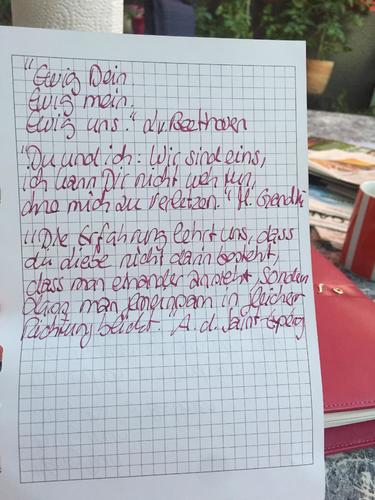 "Ewig Dein.
Ewig mein.
Ewig uns." L.v. Beethoven
"Du und ich: Wir sind eins,
ich kann Dir nicht weh tun,
ohne mich zu verletzen." M. Gandhi
"Die Erfahrung lehrt uns, dass
die Liebe nicht darin besteht,
dass man einander ansieht, sondern
dass man gemeinsam in gleicher
Richtung blickt." A. d. Saint-Exupéry